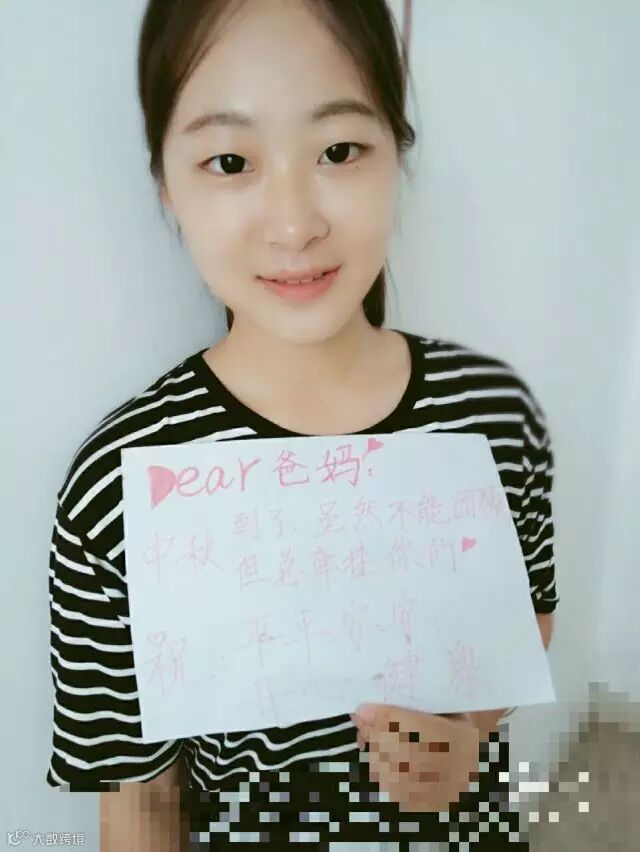 Dear爸妈:
中秋到了,虽然不能团聚
但总牵挂你们
祝:平平安安
健康
大数跨境